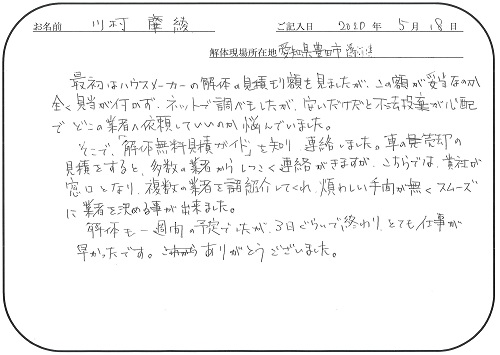 お名前 川村 ご記入日 2020年 5月 18日
解体現場所在地 愛知県豊田市
最初はハウスメーカーの解体の見積り額を見ましたが、この額が妥当なのか
全く見当が付かず、ネットで調べもしたが、安いだけだと不法投棄が心配
で どこの業者へ依頼していいのか悩んでいました。
そこで、「解体無料見積ガイド」を知り、連絡しました。車の一発売却の
見積をすると、多数の業者からしつこく連絡がきますが、こちらでは、貴社が
窓口となり、複数の業者を御紹介してくれ、煩わしい手間が無くスムーズ
に業者を決める事が出来ました。
解体も一週間の予定でしたが、3日ぐらいで終わり、とても仕事が
早かったです。ありがとうございました。